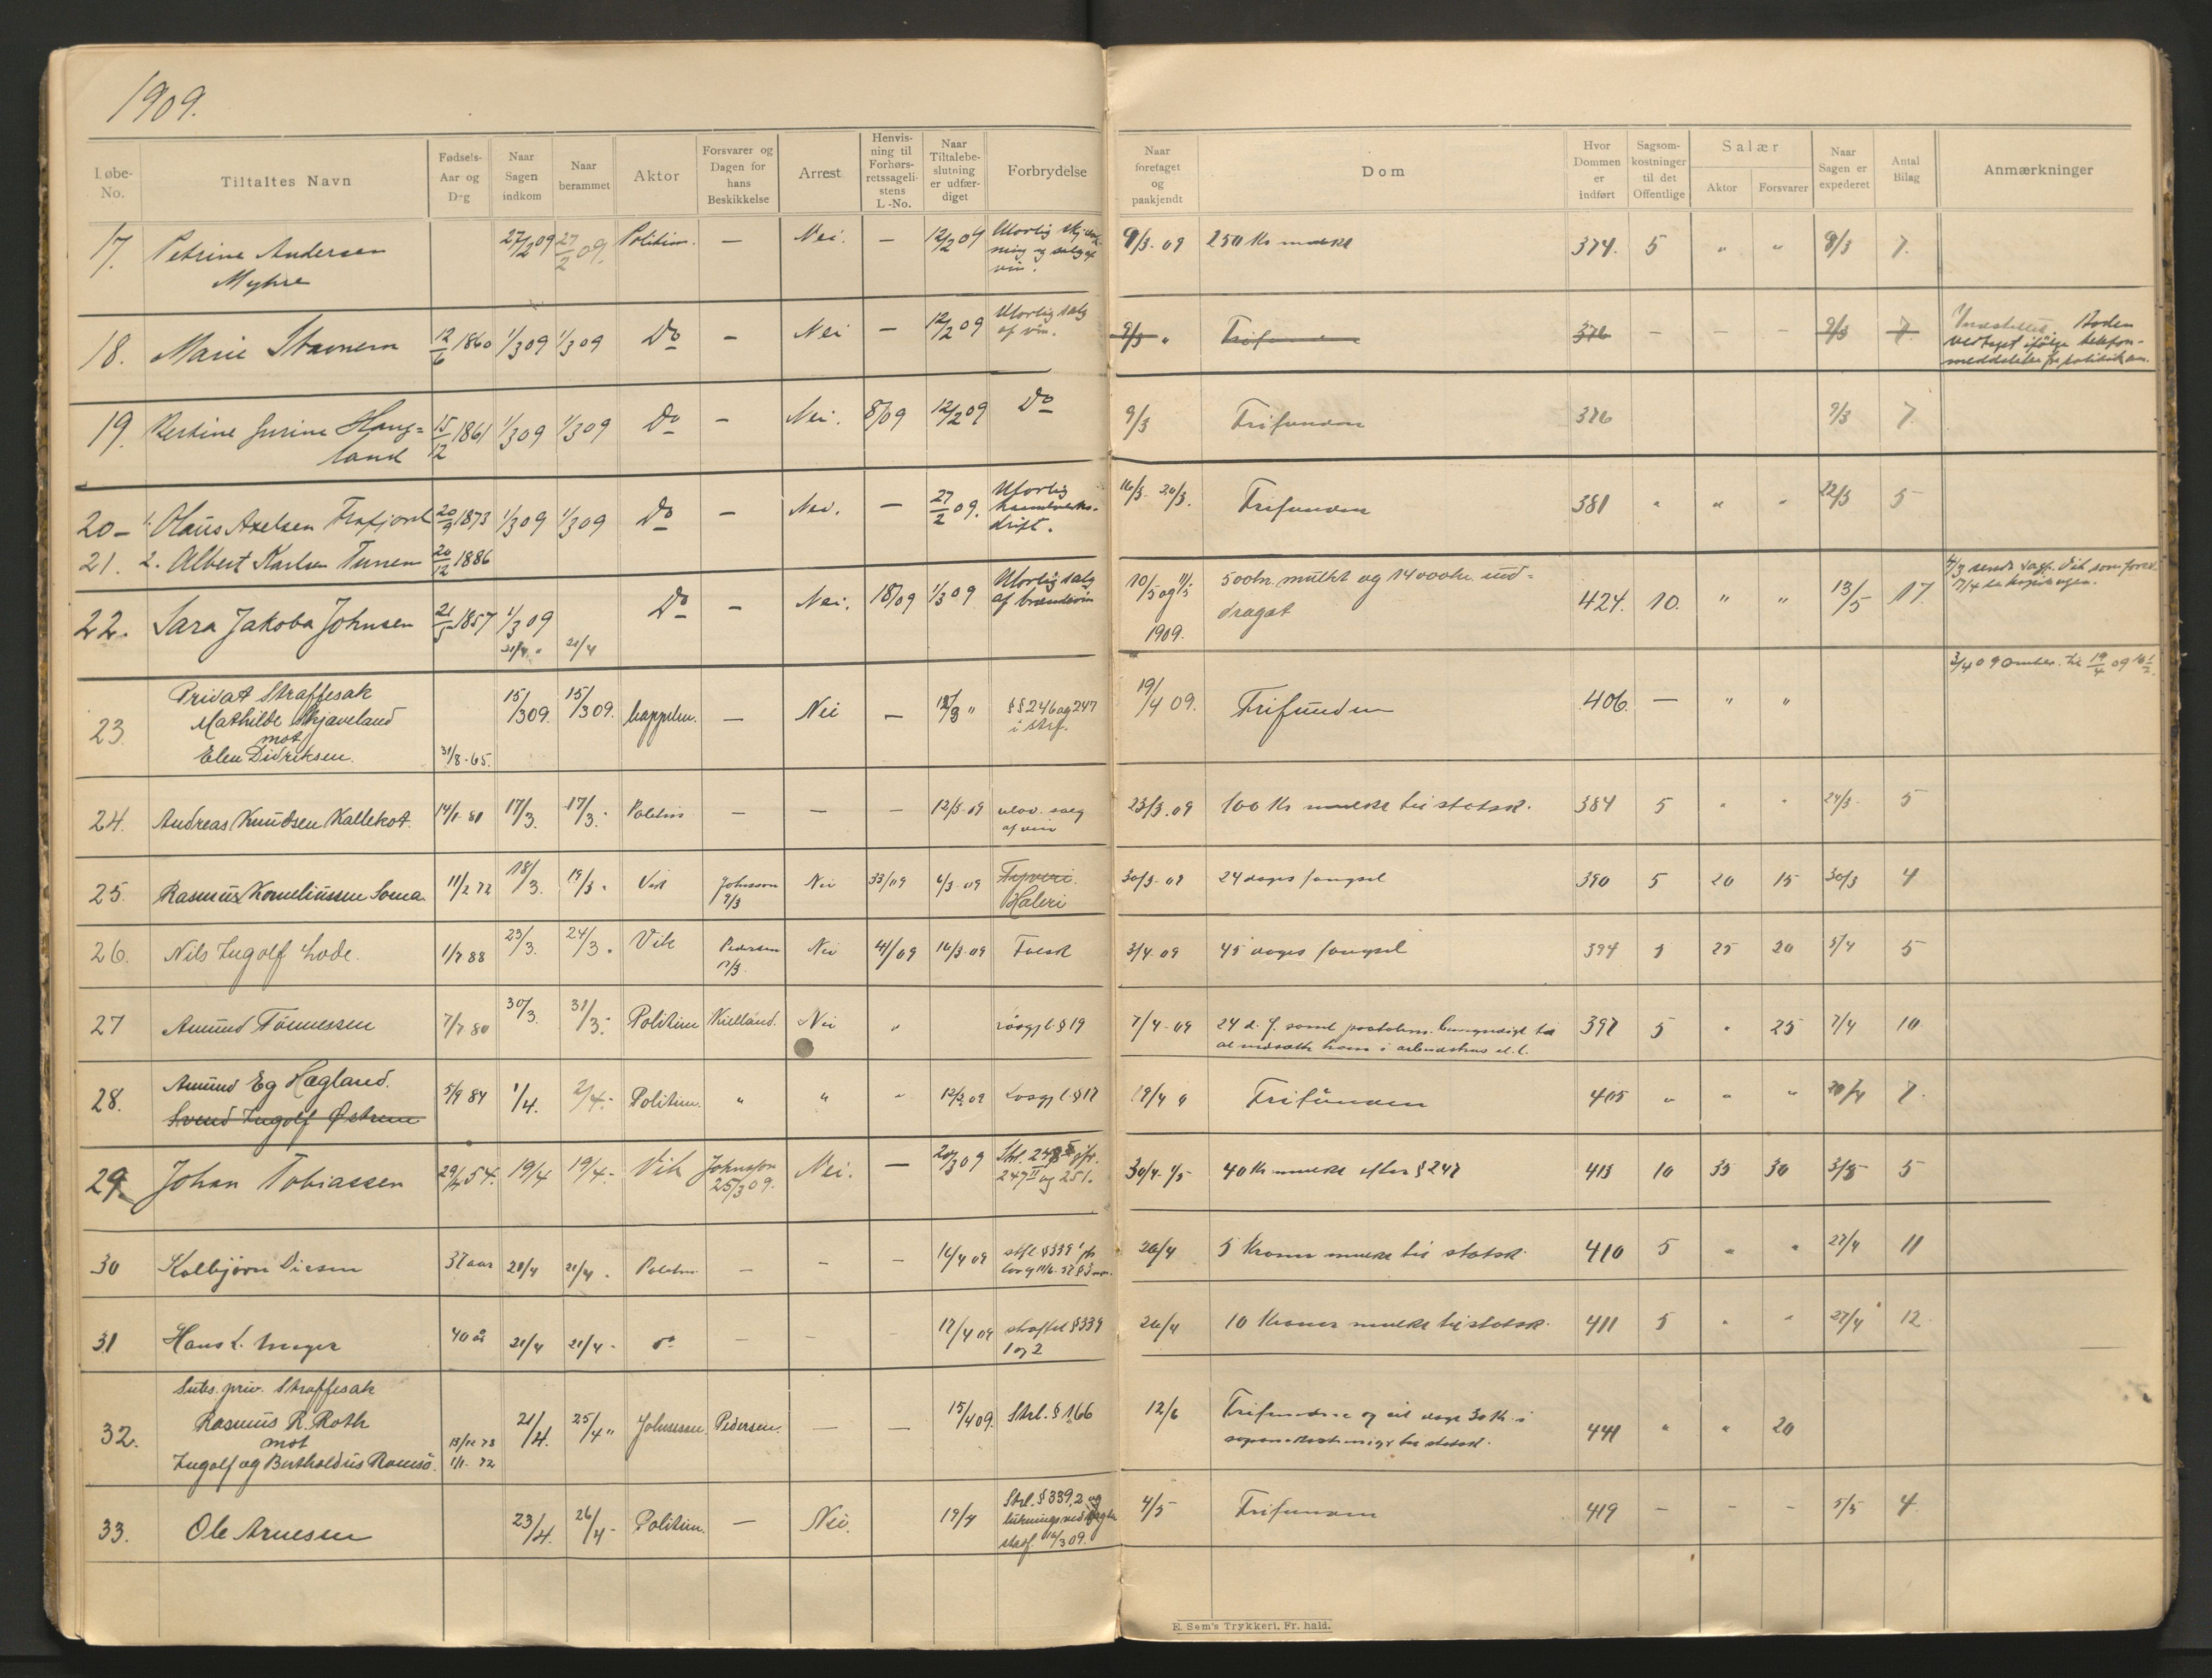 1909.
Løbe-No. Tiltaltes Navn Fødsels-Aar og Dag Naar Sagen indkom Naar berammet Aktor Forsvarer og Dagen for hans Beskikkelse Arrest Henvisning til Forhørsretssagelistens L.-No. Naar Tiltalebeslutning er udfærdiget Forbrydelse Naar foretaget og paakjendt Dom Hvor Dommen er indført Sagsomkostninger til det Offentlige Salær Aktor Forsvarer Naar Sagen er expederet Antal Bilag Anmærkninger
17. Petrine Andersen 27/2 09 27/2 09. Politim. — Nei. — 12/2 09 Ulovlig skjænk- 9/3 - 09 250 Kr mulkt 374. 5 " " 9/3 7.
Myhre ning og salg af
vin.
18. Marie Stavnem 12/6 1860 1/3 09 1/3 09 Do — Nei — 12/2 09 Ulovlig salg 9/3 " Trifunden 376 — — — 9/3 7 Boden
af vin. vedtaget ifølge telefon-
meddelelse fra politik
19. Jurine Haug= 15/12 1861 1/3 09 1/3 09 Do — Nei. 8/09 12/2 09 Do 9/3 Frifunden 376 9/3 7
land
20 – 1. Olaus Axelsen Frafjord 20/9 1873 1/3 09 1/3 09 Do — Nei. — 27/2 09. Ulovlig 16/3 - 20/3. Frifunden 381 " " " 22/3 5
haandverks-
drift.
21. 2. Albert Karlsen Tunem 20/12 1886
22. Sara Jakoba Johnsen 21/5 1857 1/3 09 Do — Nei. 18/09 1/3 09 Ulovlig salg 10/5 og 11/5 500 kr. mulkt og 14000 kr. ind- 424. 10. " " 13/5 17.
21/4 " 21/4 af brændevin 1909. draget
3/4 09 til 19/4 09
23 Privat Straffesak 15/3 09. 15/3 09. Cappelen. — Nei — 12/3 " §§ 246 og 247 19/4 09. Frifunden 406. — " "
Mathilde Skjaveland i strf.
mot
Elen Didriksen. 31/8 - 65.
24. Andreas Knudsen Kallekot. 14/1 80 17/3. 17/3. Politim — — — 12/3 09 ulov. salg 23/3. 09 100 Kr mulkt til statsk. 384 5 " " 24/3 5
af vin
25. Rasmus Korneliussen Soma. 11/2 72 18/3. 19/3. Vik Johnsson Nei 33/09 6/3 - 09 Tyveri. 30/3 - 09 24 dages fængsel 390 5 20 15 30/3 4
9/3 Hæleri
26. Nils Ingolf Lode. 1/7 88 23/3. 24/3. Vik Pedersen Nei 41/09 16/3 - 09 Falsk 3/4 - 09 45 dages fængsel 394 5 25 20 5/4 5
17/3
27 Amund Tönnessen 7/7 80 30/3. 31/3. Politim Kielland. Nei " løsgj.l. § 19 7/4 - 09 24 d. f. samt 397 5 " 25 7/4 10
at indsætte ham i arbeidshus
28. Amund Eg Hægland. 5/9 84 1/4. 2/4. Politim. " " " 12/3 09 Løsgj.l. § 17 19/4 9 Frifunden 405 " " " 20/4 7.
Svend Ingolf Østrem
29. Johan Tobiassen 29/4 54. 19/4 19/4. Vik Johnsson Nei. — 20/3 09 Strl. jfr. 30/4 - 1/5 40 Kr mulkt efter § 247 413 10 35 30 3/5 5
25/3 09. 247 II og 251.
30 Kolbjørn Diesen 37 aar 21/4 21/4. Politim — — — 16/4 09 strl § 339 1 jfr 26/4 5 Kroner mulkt til statsk. 410 5 " " 27/4 11
31 Hans L. Meyer 40 år 21/4 21/4. do — — — 17/4 09 straffel § 339 26/4 10 Kroner mulkt til statsk. 411 5 " " 27/4 12.
1 og 2
32. Subs. priv. Straffesak 21/4. 25/4 " Johnssen. Pedersen. — — 15/4 09. Strl. § 166 12/6 Frifundne og 30 Kr. i 441 " " 20
Rasmus R. Roth til statsk.
mot
Ingolf og Bertholdus Ramsö. 13/12 78
1/1 - 72
33. Ole Arnesen 23/4. 26/4. Politim. — Nei. 19/4 Strl. § 339, 2 og 4/5 Frifunden 419 — — — 5/5 4.
3 09.
E. Sem's Trykkeri, Fr. hald.